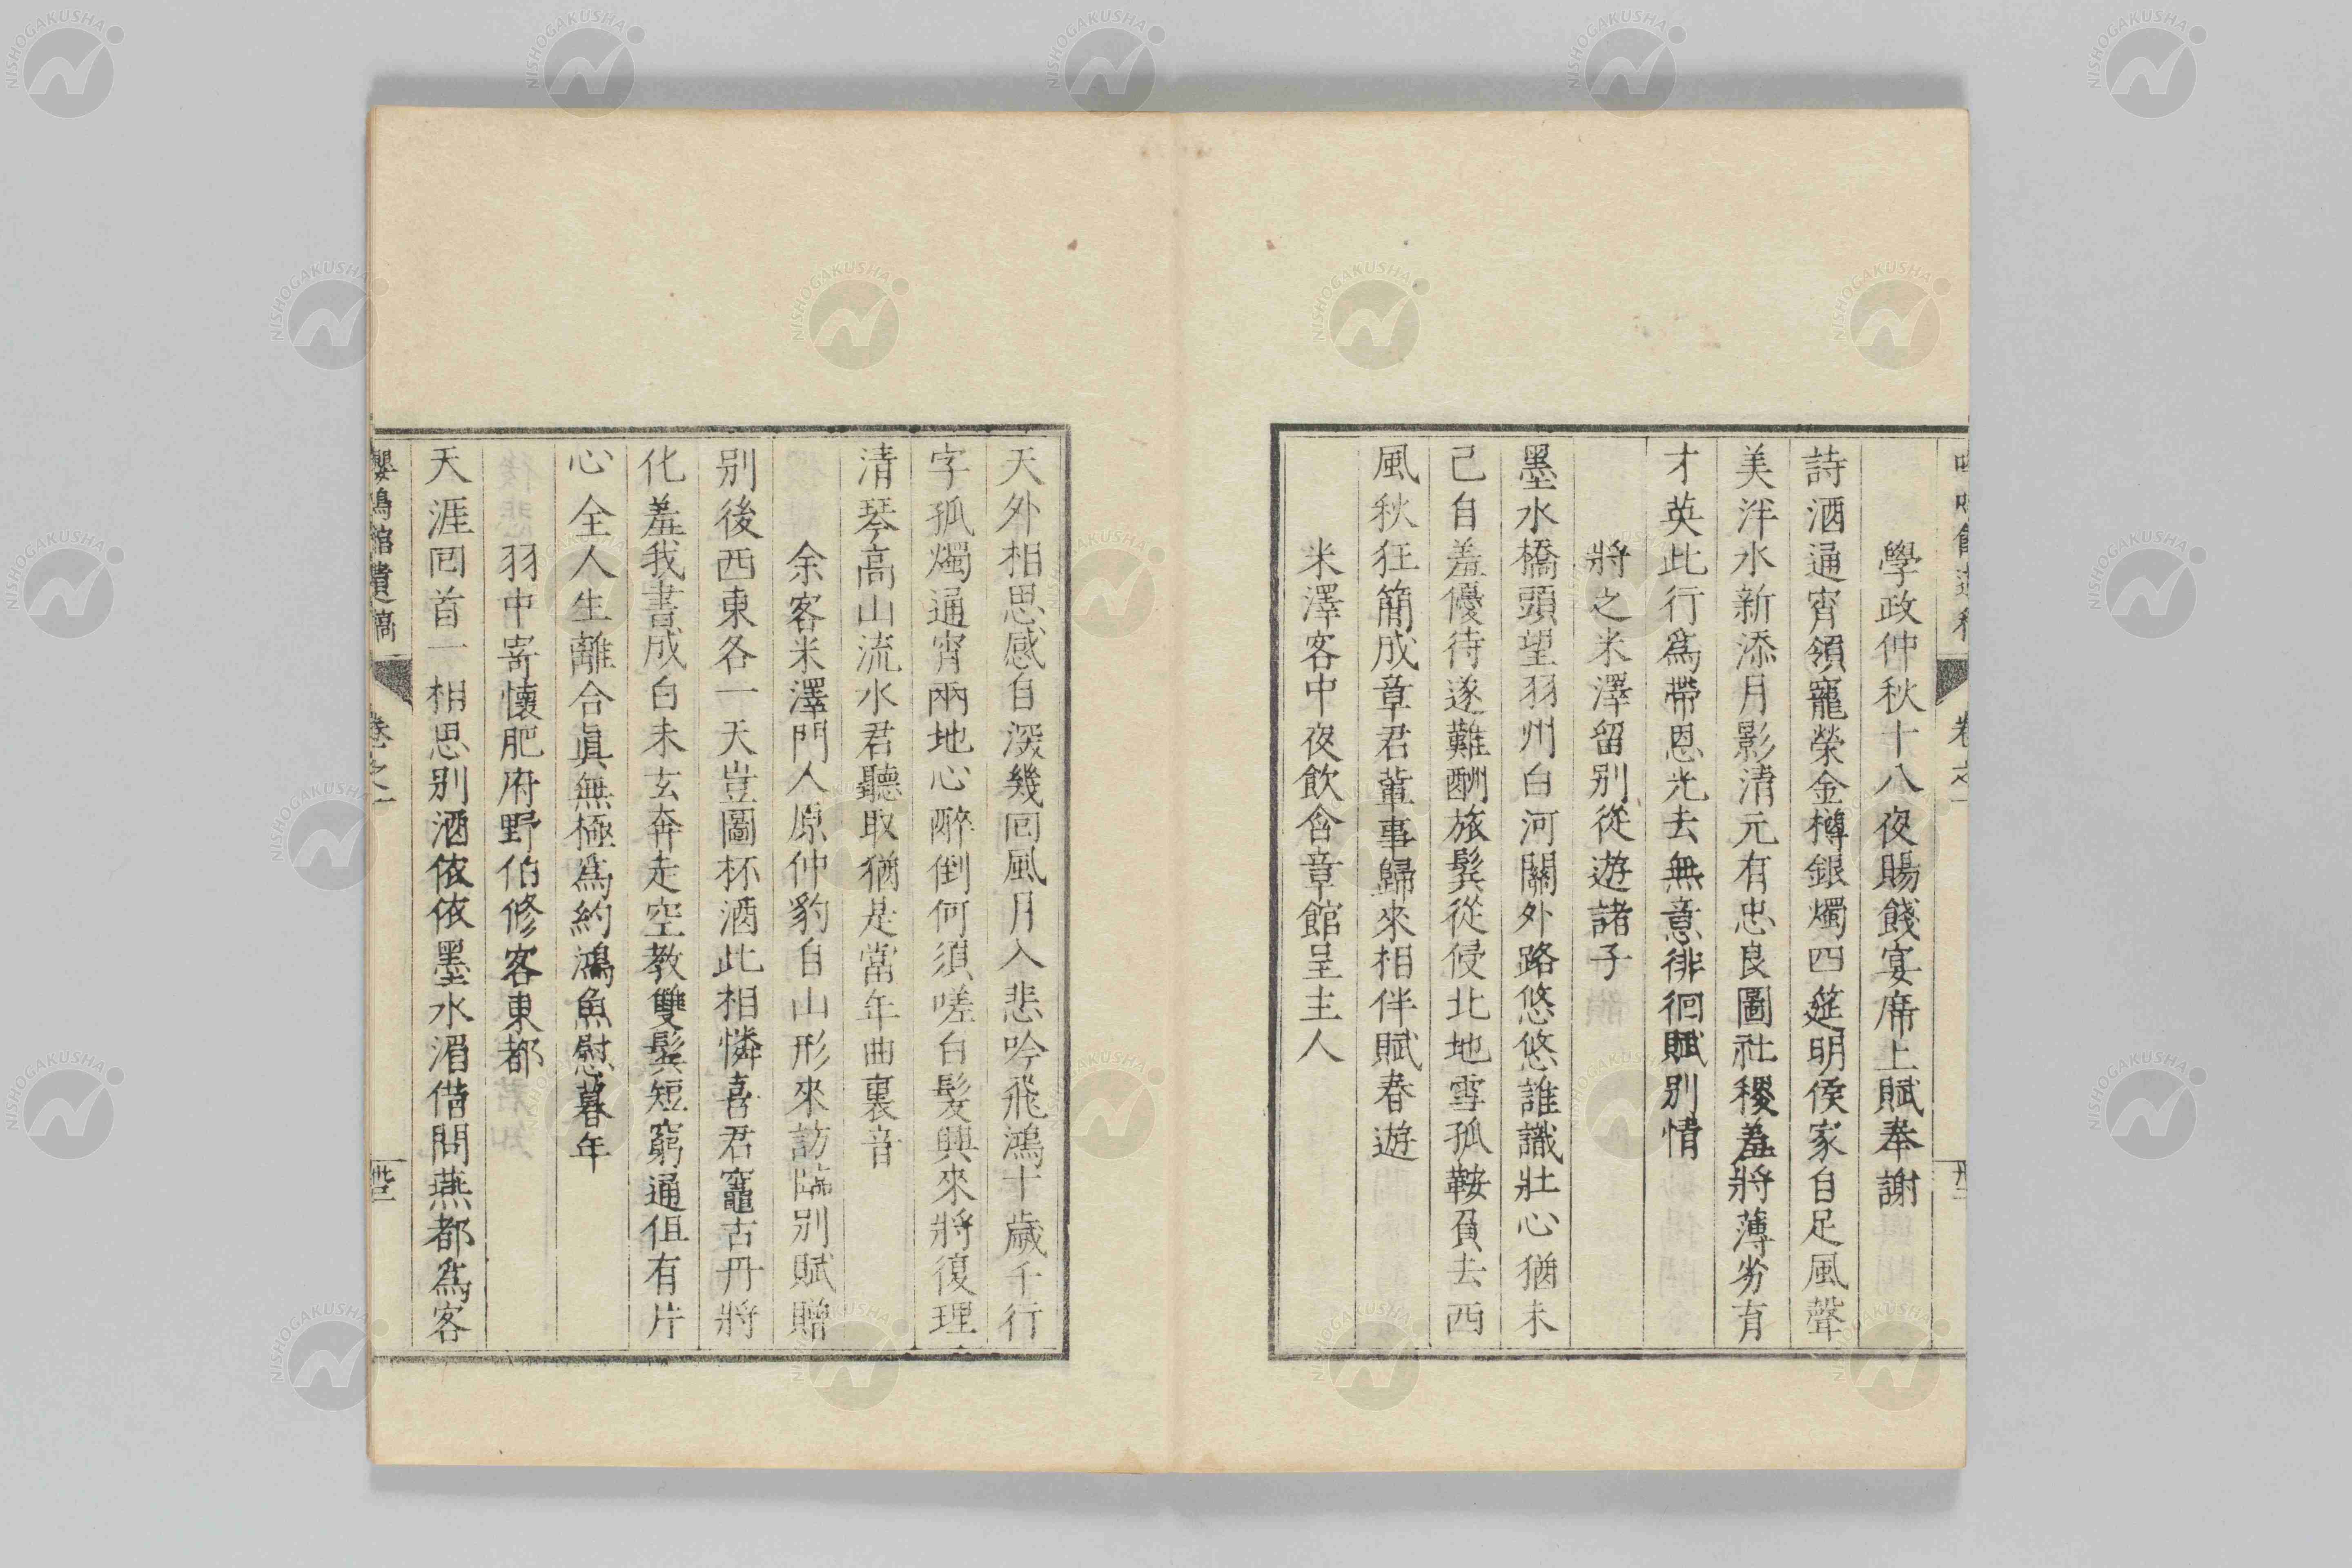 學政仲秋十八夜賜餞宴席上賦奉謝
詩酒通宵領寵榮金樽銀燭四筵明侯家自足風聲
美泮水新添月影清元有忠良圖社稷羞將薄劣育
才英此行爲帶恩光去無意徘徊賦別情
將之米澤留別從遊諸子
墨水橋頭望羽州白河關外路悠悠誰識壯心猶未
已自羞優待遂難酬旅鬂從侵北地雪孤鞍負去西
風秋狂簡成章君輩事歸來相伴賦春遊
米澤客中夜飲含章館呈主人
天外相思感自深幾回風月入悲吟飛鴻十歲千行
字孤燭通宵兩地心醉倒何須嗟白髮興來將復理
清琴高山流水君聽取猶是當年曲裏音
余客米澤門人原仲豹自山形來訪臨別賦贈
別後西東各一天豈圖杯酒此相憐喜君竈古丹將
化羞我書成白未玄奔走空教雙鬂短窮通但有片
心全人生離合眞無極爲約鴻魚慰暮年
羽中寄懷肥府野伯修客東都
天涯回首一相思別酒依依墨水湄借問燕都爲客
嚶鳴館遺稿 卷之一 卅二
NISHOGAKUSHA